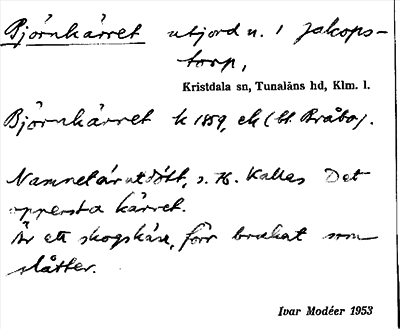 Björnkärret utjord u. i Jakops-
torp,
Kristdala sn, Tunaläns hd, Klm. l.
Björnkärret k 1859, ek (st. Bråbo).
Namnet är utdött, s. H. Kallas Det
oppersta kärret.
Är ett skogskärr, förr brukat som
slåtter.
Ivar Modéer 1953